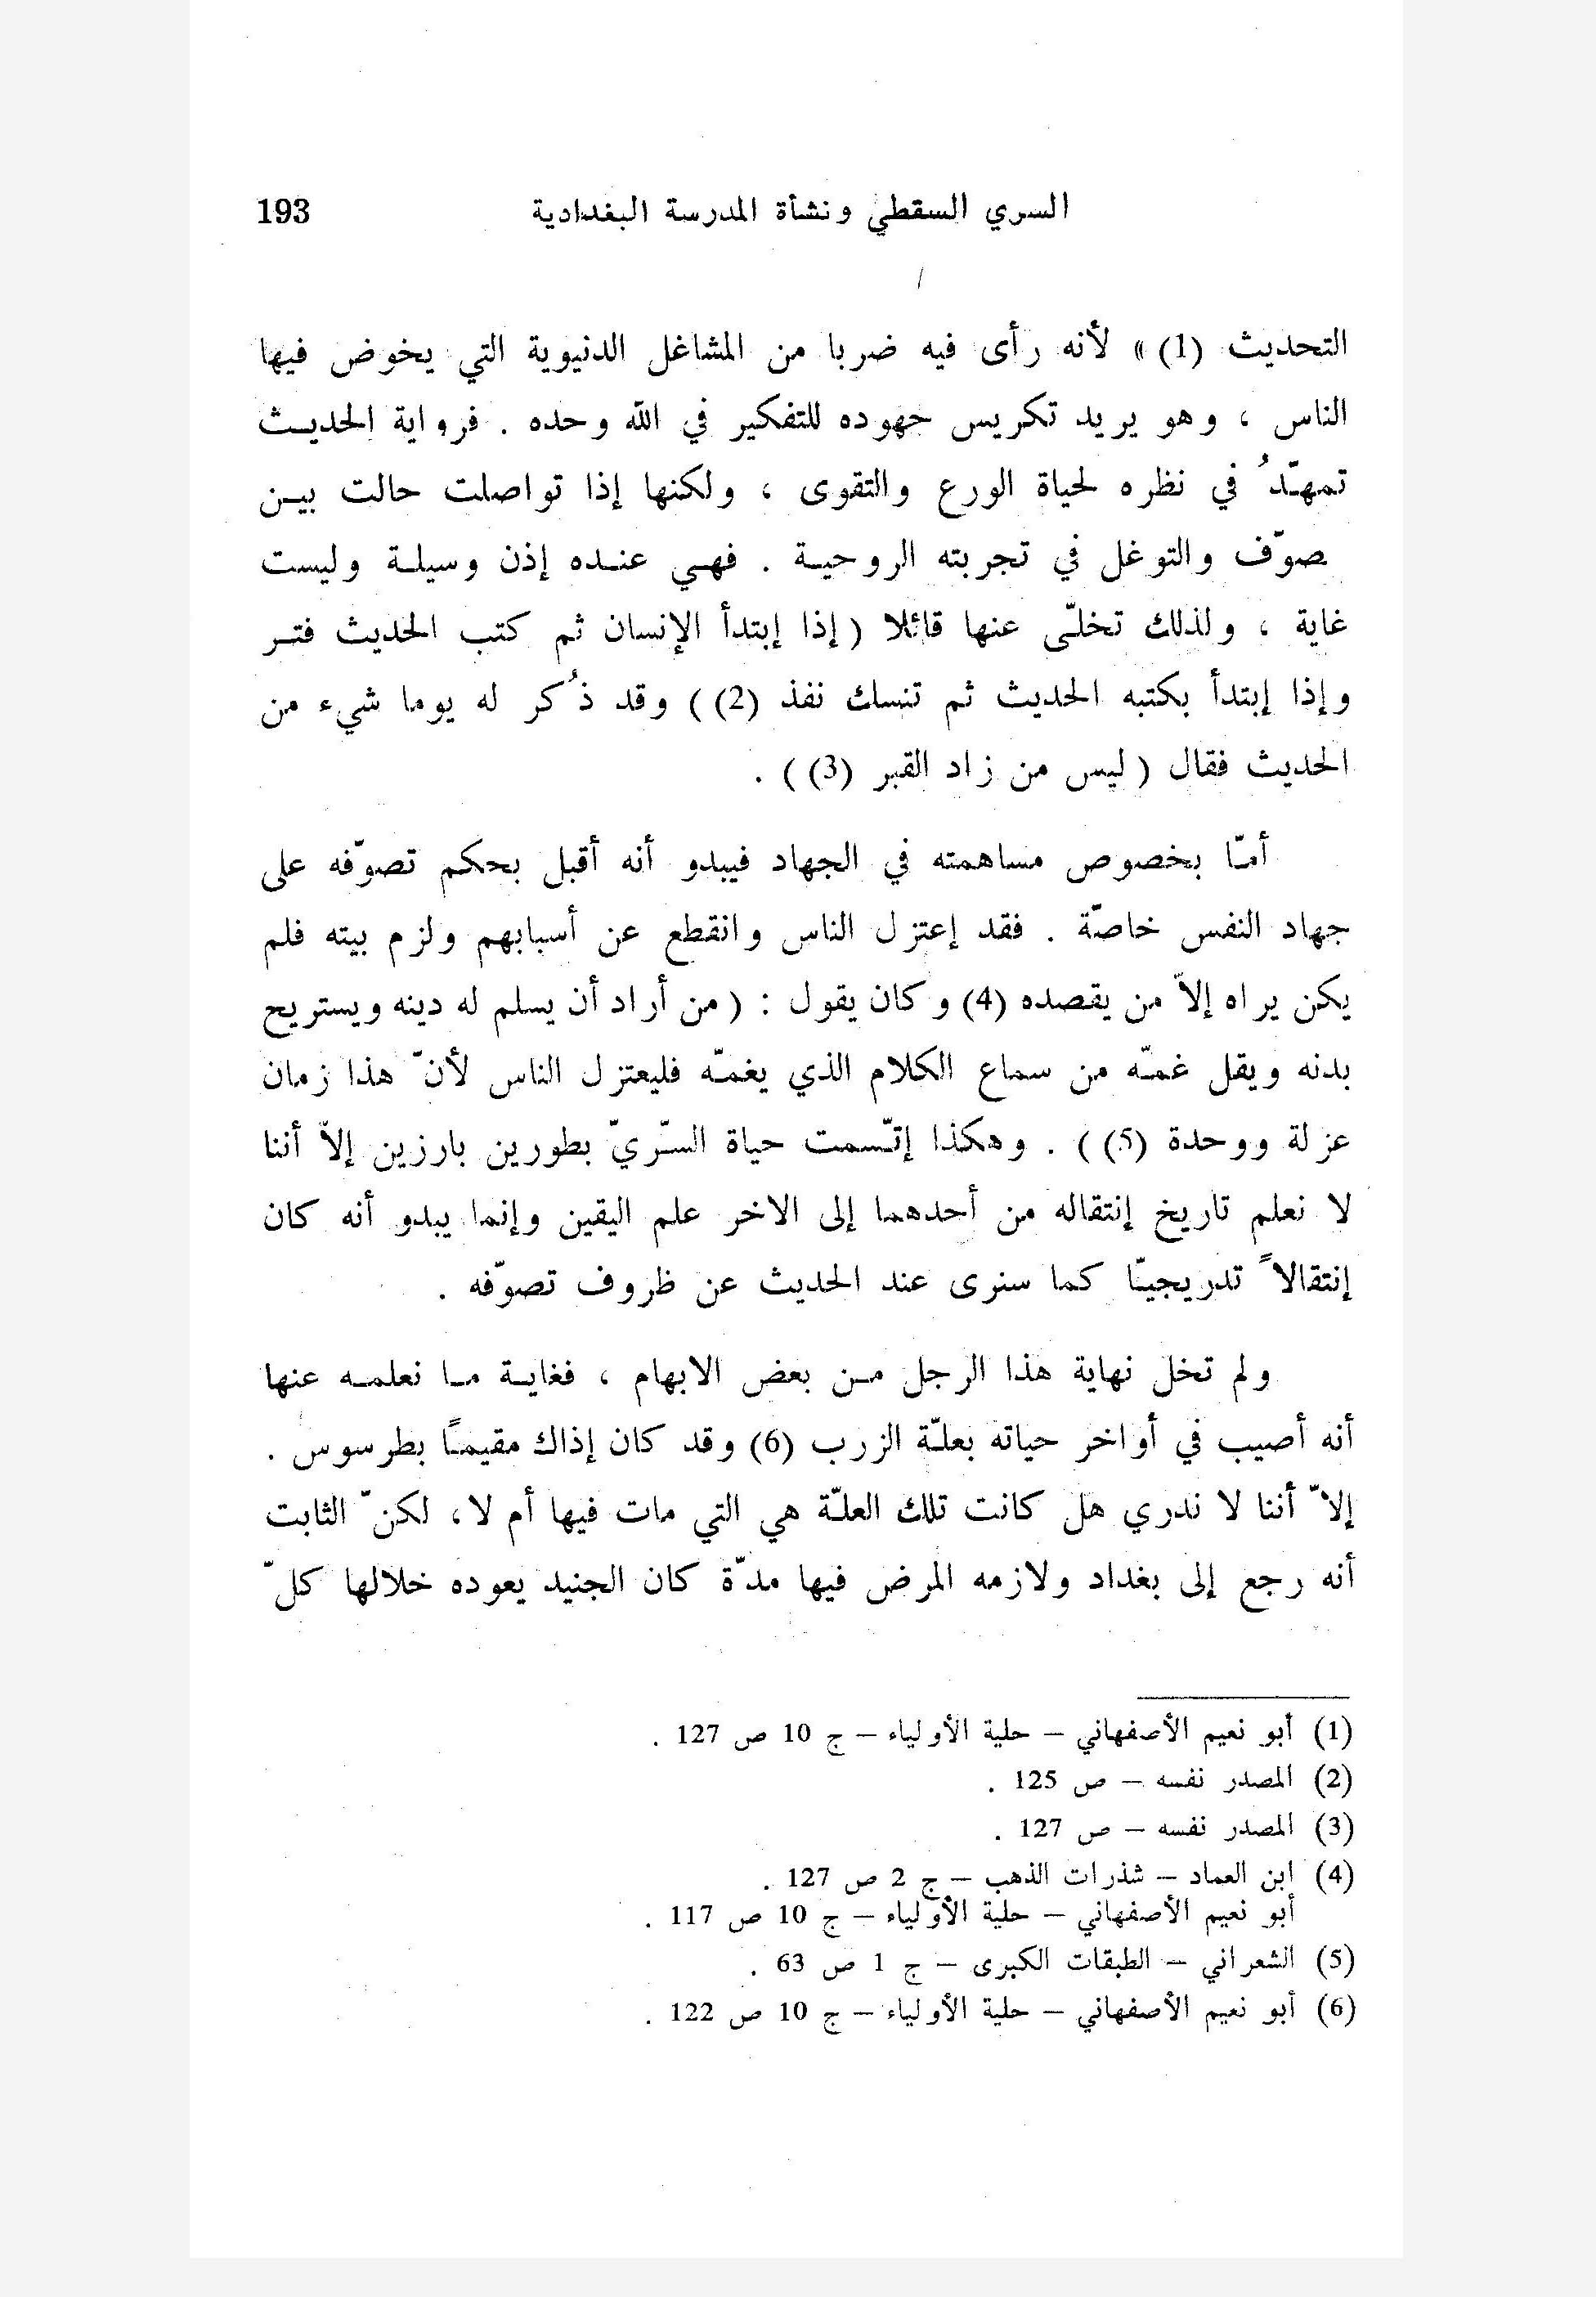 السري السقطي ونشأة المدرسة البغدادية 193
التحديث (1) » لأنه رأى فيه ضربا من المشاغل الدنيوية التي يخوض فيها
الناس ، وهو يريد تكريس جهوده للتفكير في الله وحده . فرواية الحديث
تمهّدُ في نظره لحياة الورع والتقوى ، ولكنها إذا تواصلت حالت بين
صوّف والتوغل في تجربته الروحية . فهي عنده إذن وسيلة وليست
غاية ، ولذلك تخلّى عنها قائلا ( إذا إبتدأ الإنسان ثم كتب الحديث فتر
وإذا إبتدأ بكتبه الحديث ثم تنسك نفذ (2) ) وقد ذُكر له يوما شيء من
الحديث فقال ( ليس من زاد القبر (3) ) .
أمّا بخصوص مساهمته في الجهاد فيبدو أنه أقبل بحكم تصوّفه على
جهاد النفس خاصّة . فقد إعتزل الناس وانقطع عن أسبابهم ولزم بيته فلم
يكن يراه إلاّ من يقصده (4) وكان يقول : ( من أراد أن يسلم له دينه ويستريح
بدنه ويقل غمّه من سماع الكلام الذي يغمّه فليعتزل الناس لأنّ هذا زمان
عزلة ووحدة (5) ) . وهكذا إتّسمت حياة السّريّ بطورين بارزين إلاّ أننا
لا نعلم تاريخ إنتقاله من أحدهما إلى الاخر علم اليقين وإنما يبدو أنه كان
إنتقالاً تدريجيّا كما سنرى عند الحديث عن ظروف تصوّفه .
ولم تخل نهاية هذا الرجل من بعض الابهام ، فغاية ما نعلمه عنها
أنه أصيب في أواخر حياته بعلّة الزرب (6) وقد كان إذاك مقيمًا بطرسوس .
إلاّ أننا لا ندري هل كانت تلك العلّة هي التي مات فيها أم لا، لكنّ الثابت
أنه رجع إلى بغداد ولازمه المرض فيها مدّة كان الجنيد يعوده خلالها كلّ
(1) أبو نعيم الأصفهاني – حلية الأولياء – ج 10 ص 127 .
(2) المصدر نفسه – ص 125 .
(3) المصدر نفسه – ص 127 .
(4) ابن العماد – شذرات الذهب – ج 2 ص 127 .
أبو نعيم الأصفهاني – حلية الأولياء – ج 10 ص 117 .
(5) الشعراني – الطبقات الكبرى – ج 1 ص 63 .
(6) أبو نعيم الأصفهاني – حلية الأولياء – ج 10 ص 122 .